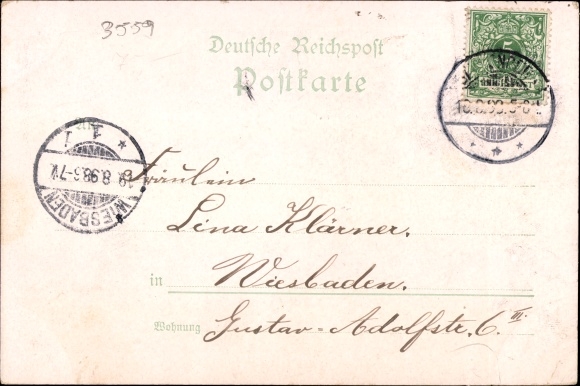 3559
Deutsche Reichspost
Postkarte
5
1
19.8.98.6-7V.
WIESBADEN
Fräulein
Lina Klärner.
in Wiesbaden.
Wohnung Gustav-Adolfstr. 6 III.